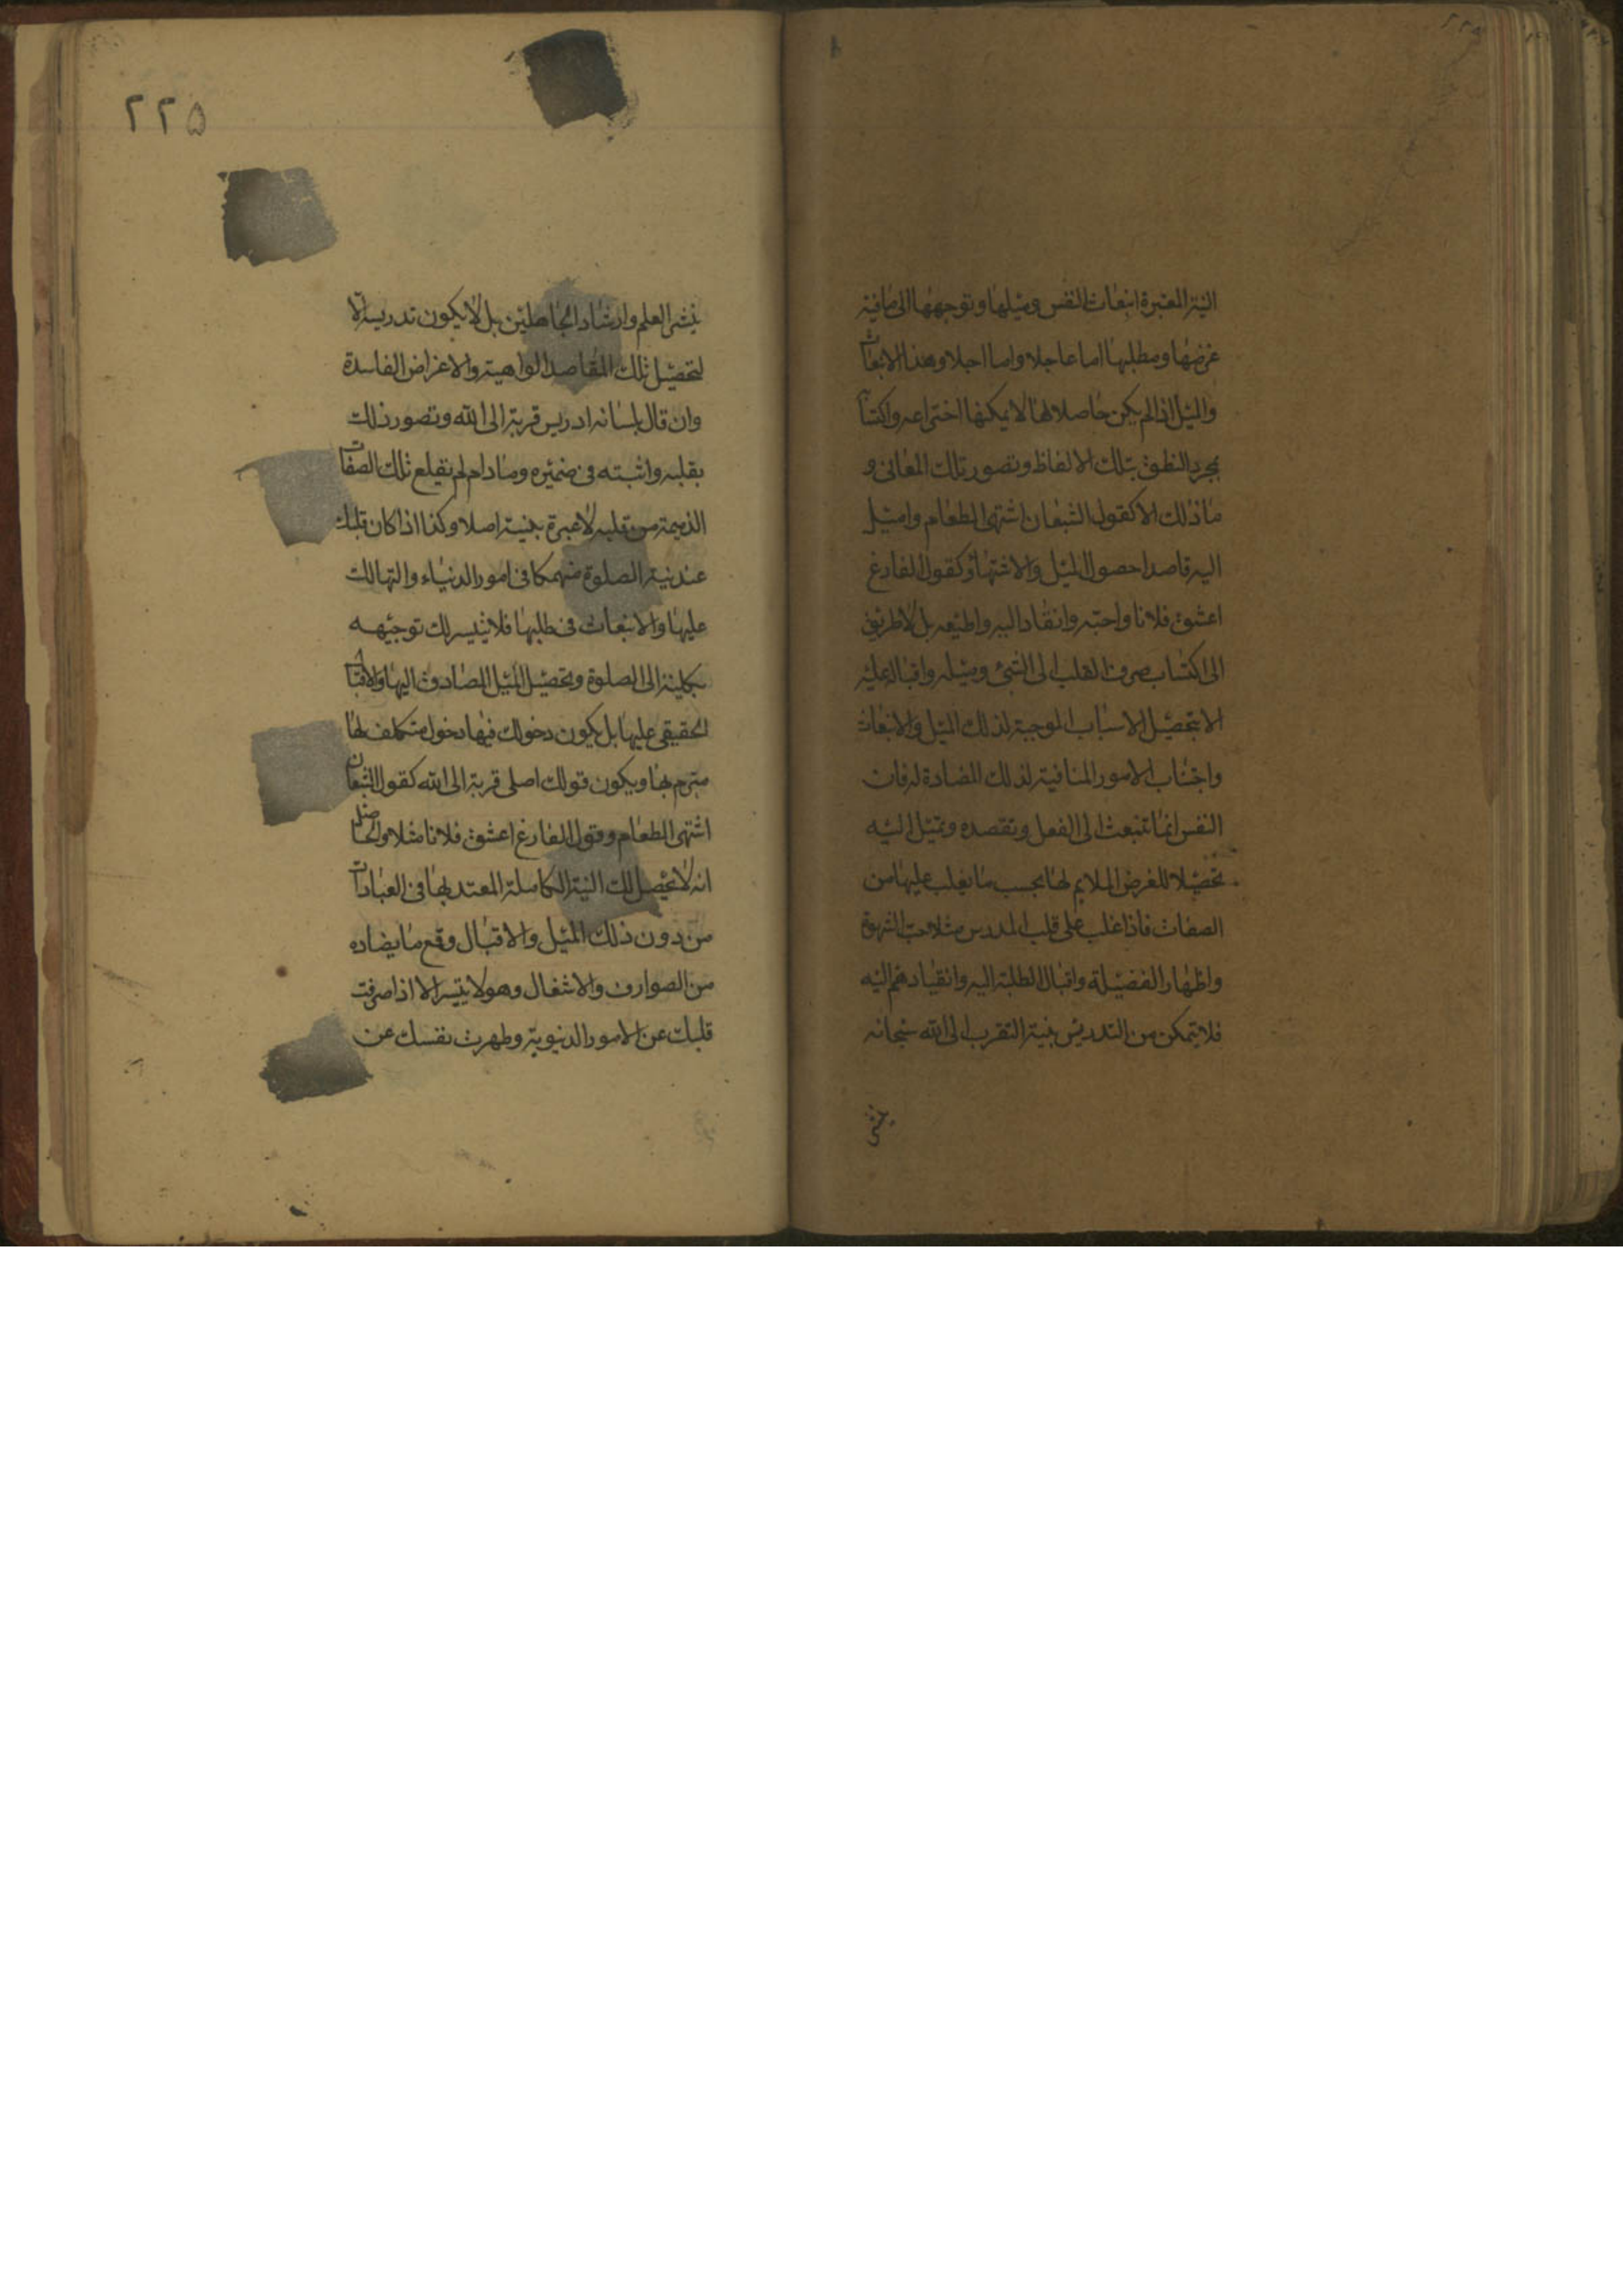 النية المعتبرة انبعاث النفس وميلها وتوجهها الى ما فيه
غرضها ومطلبها اما عاجلا واما اجلا وهذا الانبعاث
والميل اذا لم يكن حاصلا لها لا يمكنها اختراعه واكتسا
بمجرد النطق بتلك الالفاظ وتصور تلك المعانى و
ما ذلك الا كقول الشبعان اشتهى الطعام واميل
اليه قاصدا حصول الميل والاشتهاء وكقول الفارغ
اعشق فلانا واحبه وانقاد اليه واطيعه بل لا طريق
الى اكتساب صرف القلب الى الشئ وميله واقباله عليه
الا بتحصيل الاسباب الموجبة لذلك الميل والانبعاث
واجتناب الامور المنافية لذلك المضادة له فان
النفس انما تنبعث الى الفعل وتقصده وتميل اليه
تحصيلا للغرض الملايم لها بحسب ما يغلب عليها من
الصفات فاذا غلب على قلب المدرس مثلا حب الشهوة
واظهار الفضيلة واقبال الطلبة اليه وانقيادهم اليه
فلا يتمكن من التدريس بنية التقرب الى الله سبحانه
بنشر
٢٢٥
بنشر العلم وارشاد الجاهلين بل لا يكون تدريسه الا
لتحصيل تلك المقاصد الواهية والاغراض الفاسدة
وان قال بلسانه ادرس قربة الى الله وتصور ذلك
بقلبه واثبته فى ضميره وما دام لم يقلع تلك الصفات
الذميمة من قلبه لا عبرة بنيته اصلا وكذا اذا كان قلبك
عند نية الصلوة منهمكا فى امور الدنياء والتهالك
عليها والانبعاث فى طلبها فلا يتيسر لك توجيهه
بكليته الى الصلوة وتحصيل الميل الصادق اليها والاقبال
الحقيقى عليها بل يكون دخولك فيها دخول متكلف لها
متبرم بها ويكون قولك اصلى قربة الى الله كقول الشبعان
اشتهى الطعام وقول الفارغ اعشق فلانا مثلا والحاصل
انه لا يحصل لك النية الكاملة المعتد بها فى العبادات
من دون ذلك الميل والاقبال وقمع ما يضاده
من الصوارف والاشغال وهو لا يتيسر الا اذا صرفت
قلبك عن الامور الدنيوية وطهرت نفسك عن